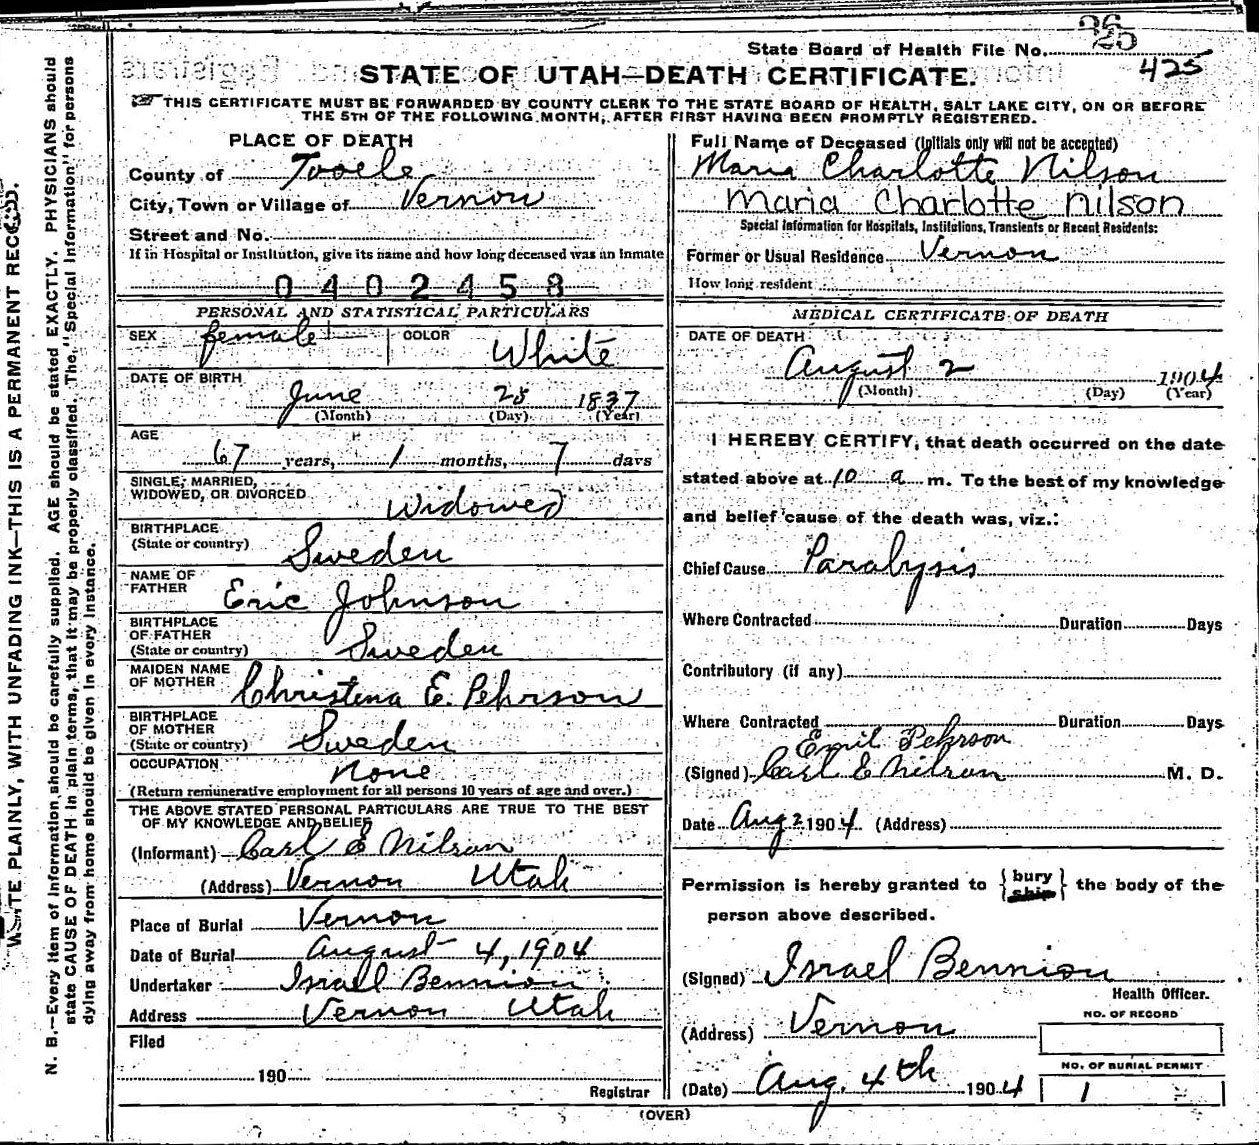 State Board of Health File No. 425
STATE OF UTAH—DEATH CERTIFICATE.
THIS CERTIFICATE MUST BE FORWARDED BY COUNTY CLERK TO THE STATE BOARD OF HEALTH, SALT LAKE CITY, ON OR BEFORE
THE 5TH OF THE FOLLOWING MONTH, AFTER FIRST HAVING BEEN PROMPTLY REGISTERED.
PLACE OF DEATH
County of Tooele
City, Town or Village of Vernon
Street and No.
If in Hospital or Institution, give its name and how long deceased was an Inmate
0402458
PERSONAL AND STATISTICAL PARTICULARS
SEX female COLOR White
DATE OF BIRTH
June 25 1837
(Month) (Day) (Year)
AGE
67 years, 1 months, 7 days
SINGLE, MARRIED,
WIDOWED, OR DIVORCED Widowed
BIRTHPLACE
(State or country) Sweden
NAME OF
FATHER Eric Johnson
BIRTHPLACE
OF FATHER
(State or country) Sweden
MAIDEN NAME
OF MOTHER Christena E. Pehrson
BIRTHPLACE
OF MOTHER
(State or country) Sweden
OCCUPATION None
(Return remunerative employment for all persons 10 years of age and over.)
THE ABOVE STATED PERSONAL PARTICULARS ARE TRUE TO THE BEST
OF MY KNOWLEDGE AND BELIEF
(Informant) Carl E Nilson
(Address) Vernon Utah
Place of Burial Vernon
Date of Burial August 4, 1904
Undertaker Israel Bennion
Address Vernon Utah
Filed
190
Registrar
Full Name of Deceased (Initials only will not be accepted)
Maria Charlotte Nilson
Maria Charlotte Nilson
Special Information for Hospitals, Institutions, Transients or Recent Residents:
Former or Usual Residence Vernon
How long resident
MEDICAL CERTIFICATE OF DEATH
DATE OF DEATH
August 2 1904
(Month) (Day) (Year)
I HEREBY CERTIFY, that death occurred on the date
stated above at 10 a m. To the best of my knowledge
and belief cause of the death was, viz.:
Chief Cause Paralysis
Where Contracted Duration Days
Contributory (if any)
Where Contracted Duration Days
Emil Pehrson
(Signed) Carl E Nilson M. D.
Date Aug 2 1904. (Address)
Permission is hereby granted to {bury ship} the body of the
person above described.
(Signed) Israel Bennion
Health Officer.
(Address) Vernon
NO. OF RECORD
(Date) Aug. 4th 1904
NO. OF BURIAL PERMIT
1
(OVER)
WRITE PLAINLY, WITH UNFADING INK—THIS IS A PERMANENT RECORD.
N. B.—Every item of information should be carefully supplied. AGE should be stated EXACTLY. PHYSICIANS should
state CAUSE OF DEATH in plain terms, that it may be properly classified. The "Special Information" for persons
dying away from home should be given in every instance.